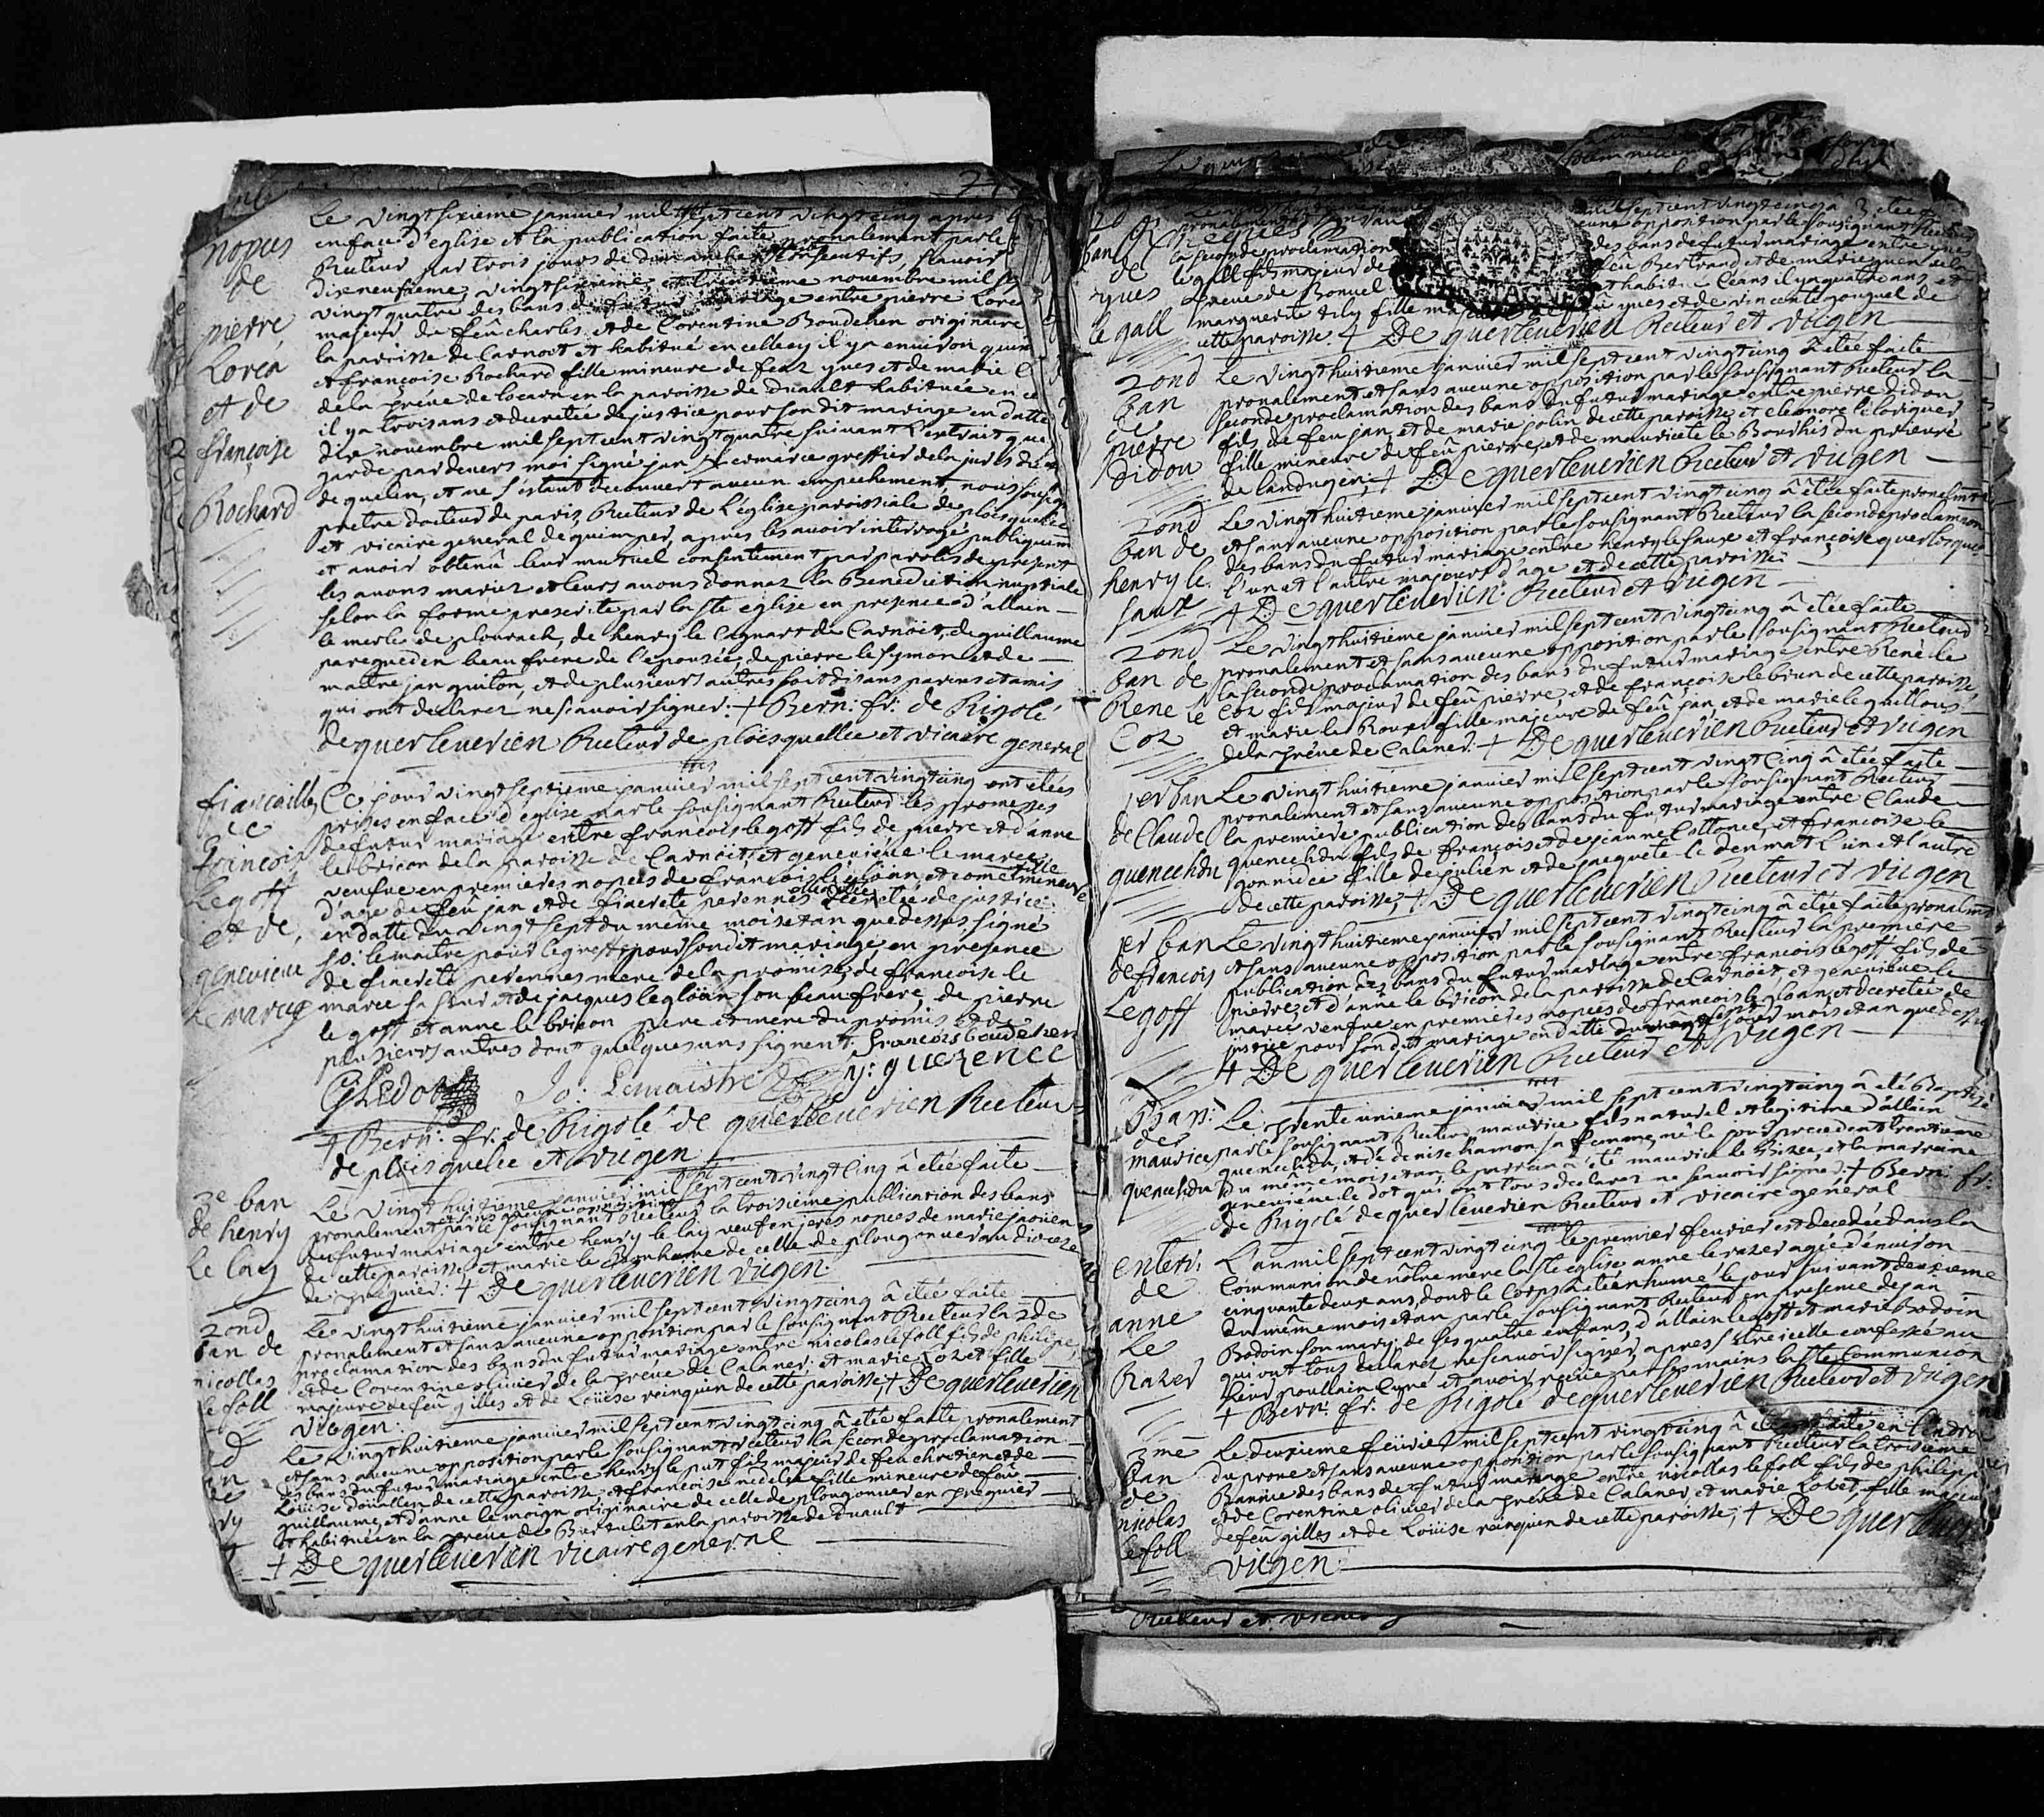 nopces
de
pierre
Lorea
et de
françoise
Rochard
Le vingtsixieme janvier mil sept cent vingtcinq apres
en face d'eglise et la publication faite pronalement par le
Recteur par trois jours de dimanches consecutifs sçavoir
dixneufieme, vingtsixieme et novembre mil
vingtquatre des bans de futur mariage entre pierre Lorea
majeur de feu charles et de Corentine Boudehen originaire
la paroisse de Carnoet et habitué en celle cy il y a environ
et françoise Rochard fille mineure de feuz yves et de marie
de la treve de locarn en la paroisse de duault habituée en
il y a trois ans et decretée de justice pour son dit mariage en datte
dix novembre mil sept cent vingtquatre suivant l'extrait que
garde par devers moi signé jan greffier de la juris
de quelen, et ne s'estant decouvert aucun empechement, nous
pretre docteur de paris Recteur de l'église paroissiale de ploesquellec
et vicaire general de quimper, apres les avoir interrogé publiquem
et avoir obtenû leur mutuel consentement par paroles de present
les avons mariez et leurs avons donnez la Benediction nuptiale
selon la forme prescrite par la ste eglise en presence d'allain
le merle de plourach, de henry le Cagnart de Carnoët, de guillaume
paregueden beau frere de l'epousée, de pierre le symon et de
maitre jan guiton, et de plusieurs autres soit disans parens et amis
qui ont declarez ne sçavoir signer: + Bern: fr: de Rigolé
de querleuerien Recteur de ploesquellec et vicaire general
fiancailles
françois
Le goff
et de
genevieve
le marec
Ce jour vingt septieme janvier mil sept cent vingtcinq ont etées
prises en face d'eglise par le sousignant Recteur les promesses
de futur mariage entre francois le goff fils de pierre et d'anne
le bricon de la paroisse de Carnoët, et genevieve le marec
veufve en premieres nopces de francois le gloan, et come fille mineure
d'age de feû jan et de fiacrete perennes decretée de justice
en datte du vingt sept du même mois et an que dessus signé
jo: le maitre pour le greffe pour son dit mariage, en presence
de fiacrete perennes mere de la promise, de françoise le
marec sa sœur et de jacques le gloan son beau frere, de pierre
le goff et anne le bricon pere et mere du promis et de
plusieurs autres dont quelques uns signent. François boudehen
G Ledot Jo: Lemaistre y: guezenec
+ Bern: fr: de Rigolé de querleuerien Recteur
de ploesquelec et vigen
3e ban
de henry
Le lay
Le vingt huitieme janvier mil sept cent vingt Cinq â etée faite
pronalement et sans aucune opposition par le sousignant Recteur la troisieme publication des bans
du futur mariage entre henry le lay veuf en jeres nopces de marie jaouen
de cette paroisse et marie le Bonhome de celle de plougonver du diocese
de treguier: + De querleuerien vigen
2ond
ban de
nicollas
le foll
Le vingt huitieme janvier mil sept cent vingtcinq â etée faite
pronalement et sans aucune opposition par le sousignant Recteur la 2de
proclamation des bans du futur mariage entre nicolas le foll fils de philippe
et de Corentine olivier de la treve de Calanec: et marie Lozet fille
majeure de feu gilles et de Loüise rainquen de cette paroisse, + De querleuerien
vicgen:
Le vingt huitieme janvier mil sept cent vingtcinq â etée faite pronalement
et sans aucune opposition par le sousignant recteur la seconde proclamation
des bans du futur mariage entre henry le put fils majeur de feu chretien et de
Loüise douallen de cette paroisse et françoise nedelec fille mineure de feu
guillaume, et d'anne le moign originaire de celle de plougonver en treguier
et habituée en la treve de Burtulet en la paroisse de duault
+ De querleuerien vicaire general
ban
de
yves
le gall
mil sept cent vingtcinq a etée
pronalement et sans aucune opposition par le sousignant Recteur
la seconde proclamation des bans de futur mariage entre yves
le gall fils majeur de feû Bertrand et de marie
treve de Bonuel et habitué Ceans il y a quatre ans et
marguerite tily fille majeure de feû yves et de vincente gouguel de
cette paroisse + De querleuerien Recteur et vicgen
2ond
ban
de
pierre
didou
Le vingt huitieme janvier mil sept cent vingtcinq â etée faite
pronalement et sans aucune opposition par le sousignant Recteur la
seconde proclamation des bans du futur mariage entre pierre didou
fils de feu jan, et de marie jolin de cette paroisse, et eleonore le
fille mineure de feû pierre, et de mauricete le Bourhis du prieuré
de landugen, + De querleuerien Recteur et vicgen
2ond
ban de
henry le
faux
Le vingt huitieme janvier mil sept cent vingtcinq â etée faite pronalmt
et sans aucune opposition par le sousignant Recteur la seconde proclamaon
des bans du futur mariage entre henry le faux et françoise
l'un et l'autre majeurs d'age et de cette paroisse
+ De querleuerien Recteur et vicgen
2ond
ban de
Rene le
Coz
Le vingt huitieme janvier mil sept cent vingtcinq â etée faite
pronalement et sans aucune opposition par le sousignant Recteur
la seconde proclamation des bans du futur mariage entre René le
Coz fils majeur de feû pierre, et de françoise le brun de cette paroisse,
et marie le Roux fille majeure de feû jan, et de marie le guillous
de la treve de Calanec. + De querleuerien Recteur et vicgen
jer ban
de Claude
quenechdu
Le vingt huitieme janvier mil sept cent vingt Cinq â etée faite
pronalement et sans aucune opposition par le sousignant Recteur
la premiere publication des bans du futur mariage entre Claude
quenechdu fils de françois et de jeanne Cottonec, et francoise le
gonnidec fille de julien et de jacquete le denmat l'un et l'autre
de cette paroisse, + De querleuerien Recteur et vicgen
jer ban
de francois
Le goff
Le vingt huitieme janvier mil sept cent vingtcinq â etée faite pronalmt
et sans aucune opposition par le sousignant Recteur la premiere
publication des bans du futur mariage entre francois le goff fils de
pierre, et d'anne le bricon de la paroisse de Carnoët, et genevieve le
marec veufve en premieres nopces de francois le gloan, et decretée de
justice pour son dit mariage en datte du jour mois et an que dessus
+ De querleuerien Recteur et vicgen
Bap:
de
maurice
quenechdu
Le trente unieme janvier mil sept cent vingtcinq â été Baptizé
par le sousignant Recteur maurice fils naturel et legitime d'allain
quenechdu, et de denise hamon sa femme, né le jour precedent trentieme
du même mois et an, le parrain a été maurice le Bizec, et la marraine
genevieve le dot qui ont tous declarez ne sçavoir signer. + Bern: fr:
de Rigolé de querleuerien Recteur et vicaire général
enterr:
de
anne
Le
Razer
L'an mil sept cent vingtcinq le premier feuvrier est decedée dans la
Communion de nôtre mere la ste eglise anne le razer agée d'environ
cinquante deux ans, dont le Corps â été enhumé le jour suivant deuxieme
du même mois et an par le sousignant Recteur en presence de jan
Bodoin son mary, de ses quatre enfans, d'allain le goff et marie bodoin
qui ont tous declarez ne sçavoir signer, apres s'etre icelle confessée au
sieur poullain Curé et avoir recüe par ses mains la ste Communion
+ Bern: fr: de Rigolé de querleuerien Recteur et vicgen
3me
ban
de
nicolas
le foll
Le deuxieme feuvrier mil sept cent vingtcinq â etée faite en l'endroit
du prone et sans aucune opposition par le sousignant Recteur la troisieme
Bannie des bans de futur mariage entre nicollas le foll fils de philippe
et de Corentine olivier de la treve de Calanec, et marie Lozet, fille majeure
de feû gilles et de Loüise rainquen de cette paroisse, + De querleuerien
vicgen
Recteur et vicaire g